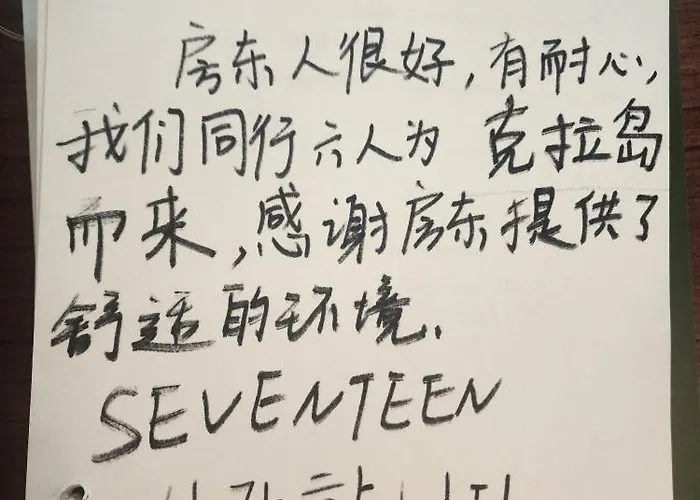 房东人很好,有耐心,
我们同行六人为 克拉岛
而来,感谢房东提供了
舒适的环境.
SEVENTEEN